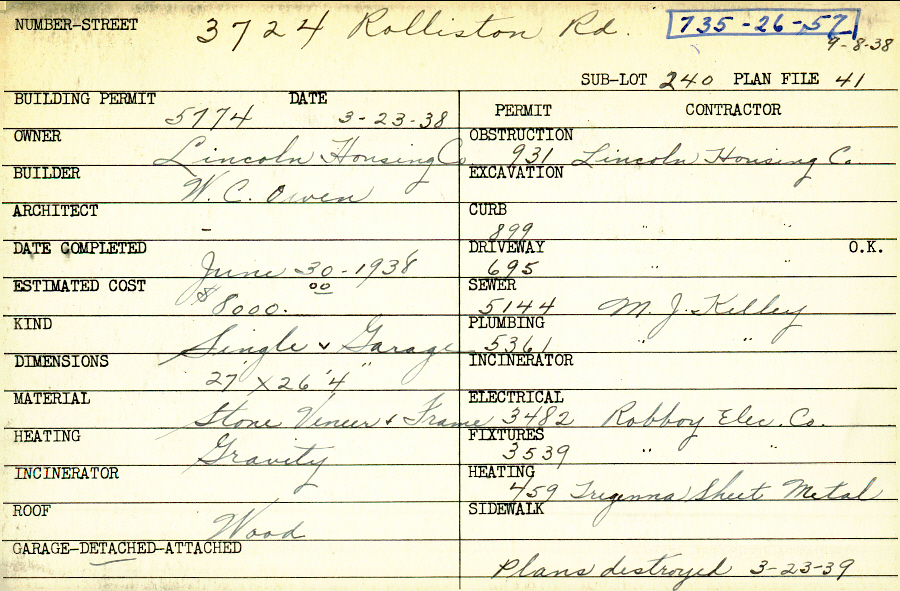 NUMBER-STREET 3724 Rolliston Rd. 735-26-57
9-8-38
SUB-LOT 240 PLAN FILE 41
BUILDING PERMIT 5774 DATE 3-23-38
OWNER Lincoln Housing Co
BUILDER W. C. Owen
ARCHITECT -
DATE COMPLETED June 30-1938
ESTIMATED COST $8000.00
KIND Single & Garage
DIMENSIONS 27' x 26'4"
MATERIAL Stone Veneer & Frame
HEATING Gravity
INCINERATOR
ROOF Wood
GARAGE-DETACHED-ATTACHED
PERMIT CONTRACTOR
OBSTRUCTION 931 Lincoln Housing Co.
EXCAVATION
CURB 899 " "
DRIVEWAY 695 " " O.K.
SEWER 5144 M. J. Kelley
PLUMBING 5361 " "
INCINERATOR
ELECTRICAL 3482 Robboy Elec. Co.
FIXTURES 3539 " "
HEATING 459 Tregenna Sheet Metal
SIDEWALK
Plans destroyed 3-23-39